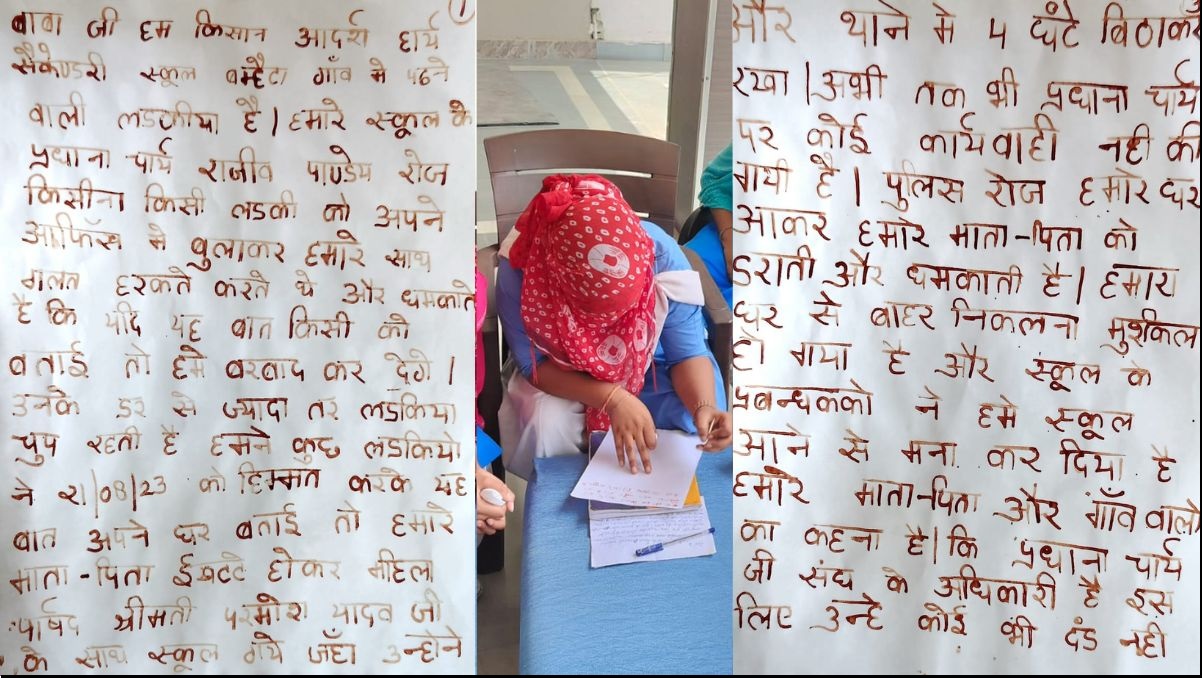 1
बाबा जी हम किसान आदर्श हार्य
सैकेण्डरी स्कूल बम्हैटा गाँव मे पढने
वाली लडकीया है। हमारे स्कूल के
प्रधाना चार्य राजीव पाण्डेय रोज
किसीना किसी लडकी को अपने
आफिॅस मे बुलाकर हमारे साथ
गलत हरकते करते थे और धमकाते
है कि यदि यह बात किसी को
बताई तो हमे बरबाद कर देगे।
उनके डर से ज्यादा तर लडकिया
चुप रहती है हमने कुछ लडकियो
ने 21/08/23 को हिम्मत करके यह
बात अपने घर बताई तो हमारे
माता-पिता ईखटटे होकर महिला
पार्षद श्रीमती परमोश यादव जी
के साथ स्कूल गये जहाँ उन्होने
और थाने मे 4 घंटे बिठाकर
रखा। अभी तक भी प्रधाना चार्य
पर कोई कार्यवाही नही की
गयी है। पुलिस रोज हमारे घर
आकर हमारे माता-पिता को
डराती और धमकाती है। हमारा
घर से बाहर निकलना मुशकिल
हो गया है और स्कूल के
प्रबन्धकको ने हमे स्कूल
आने से मना कर दिया है
हमारे माता-पिता और गाँव वालो
का कहना है। कि प्रधाना चार्य
जी संघ के अधिकारी है इस
लिए उन्हे कोई भी दंड नही